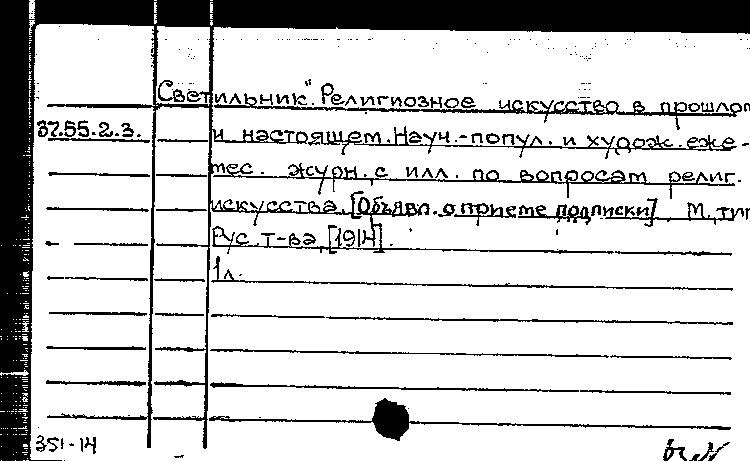 Светильник". Религиозное искусство в прошлом
37.55.2.3. и настоящем. Науч.-попул. и худож. еже-
мес. журн. с илл. по вопросам религ.
искусства. [Объявл. о приеме подписки]. М., тип.
Рус. т-ва, [1914].
1 л.
351-14